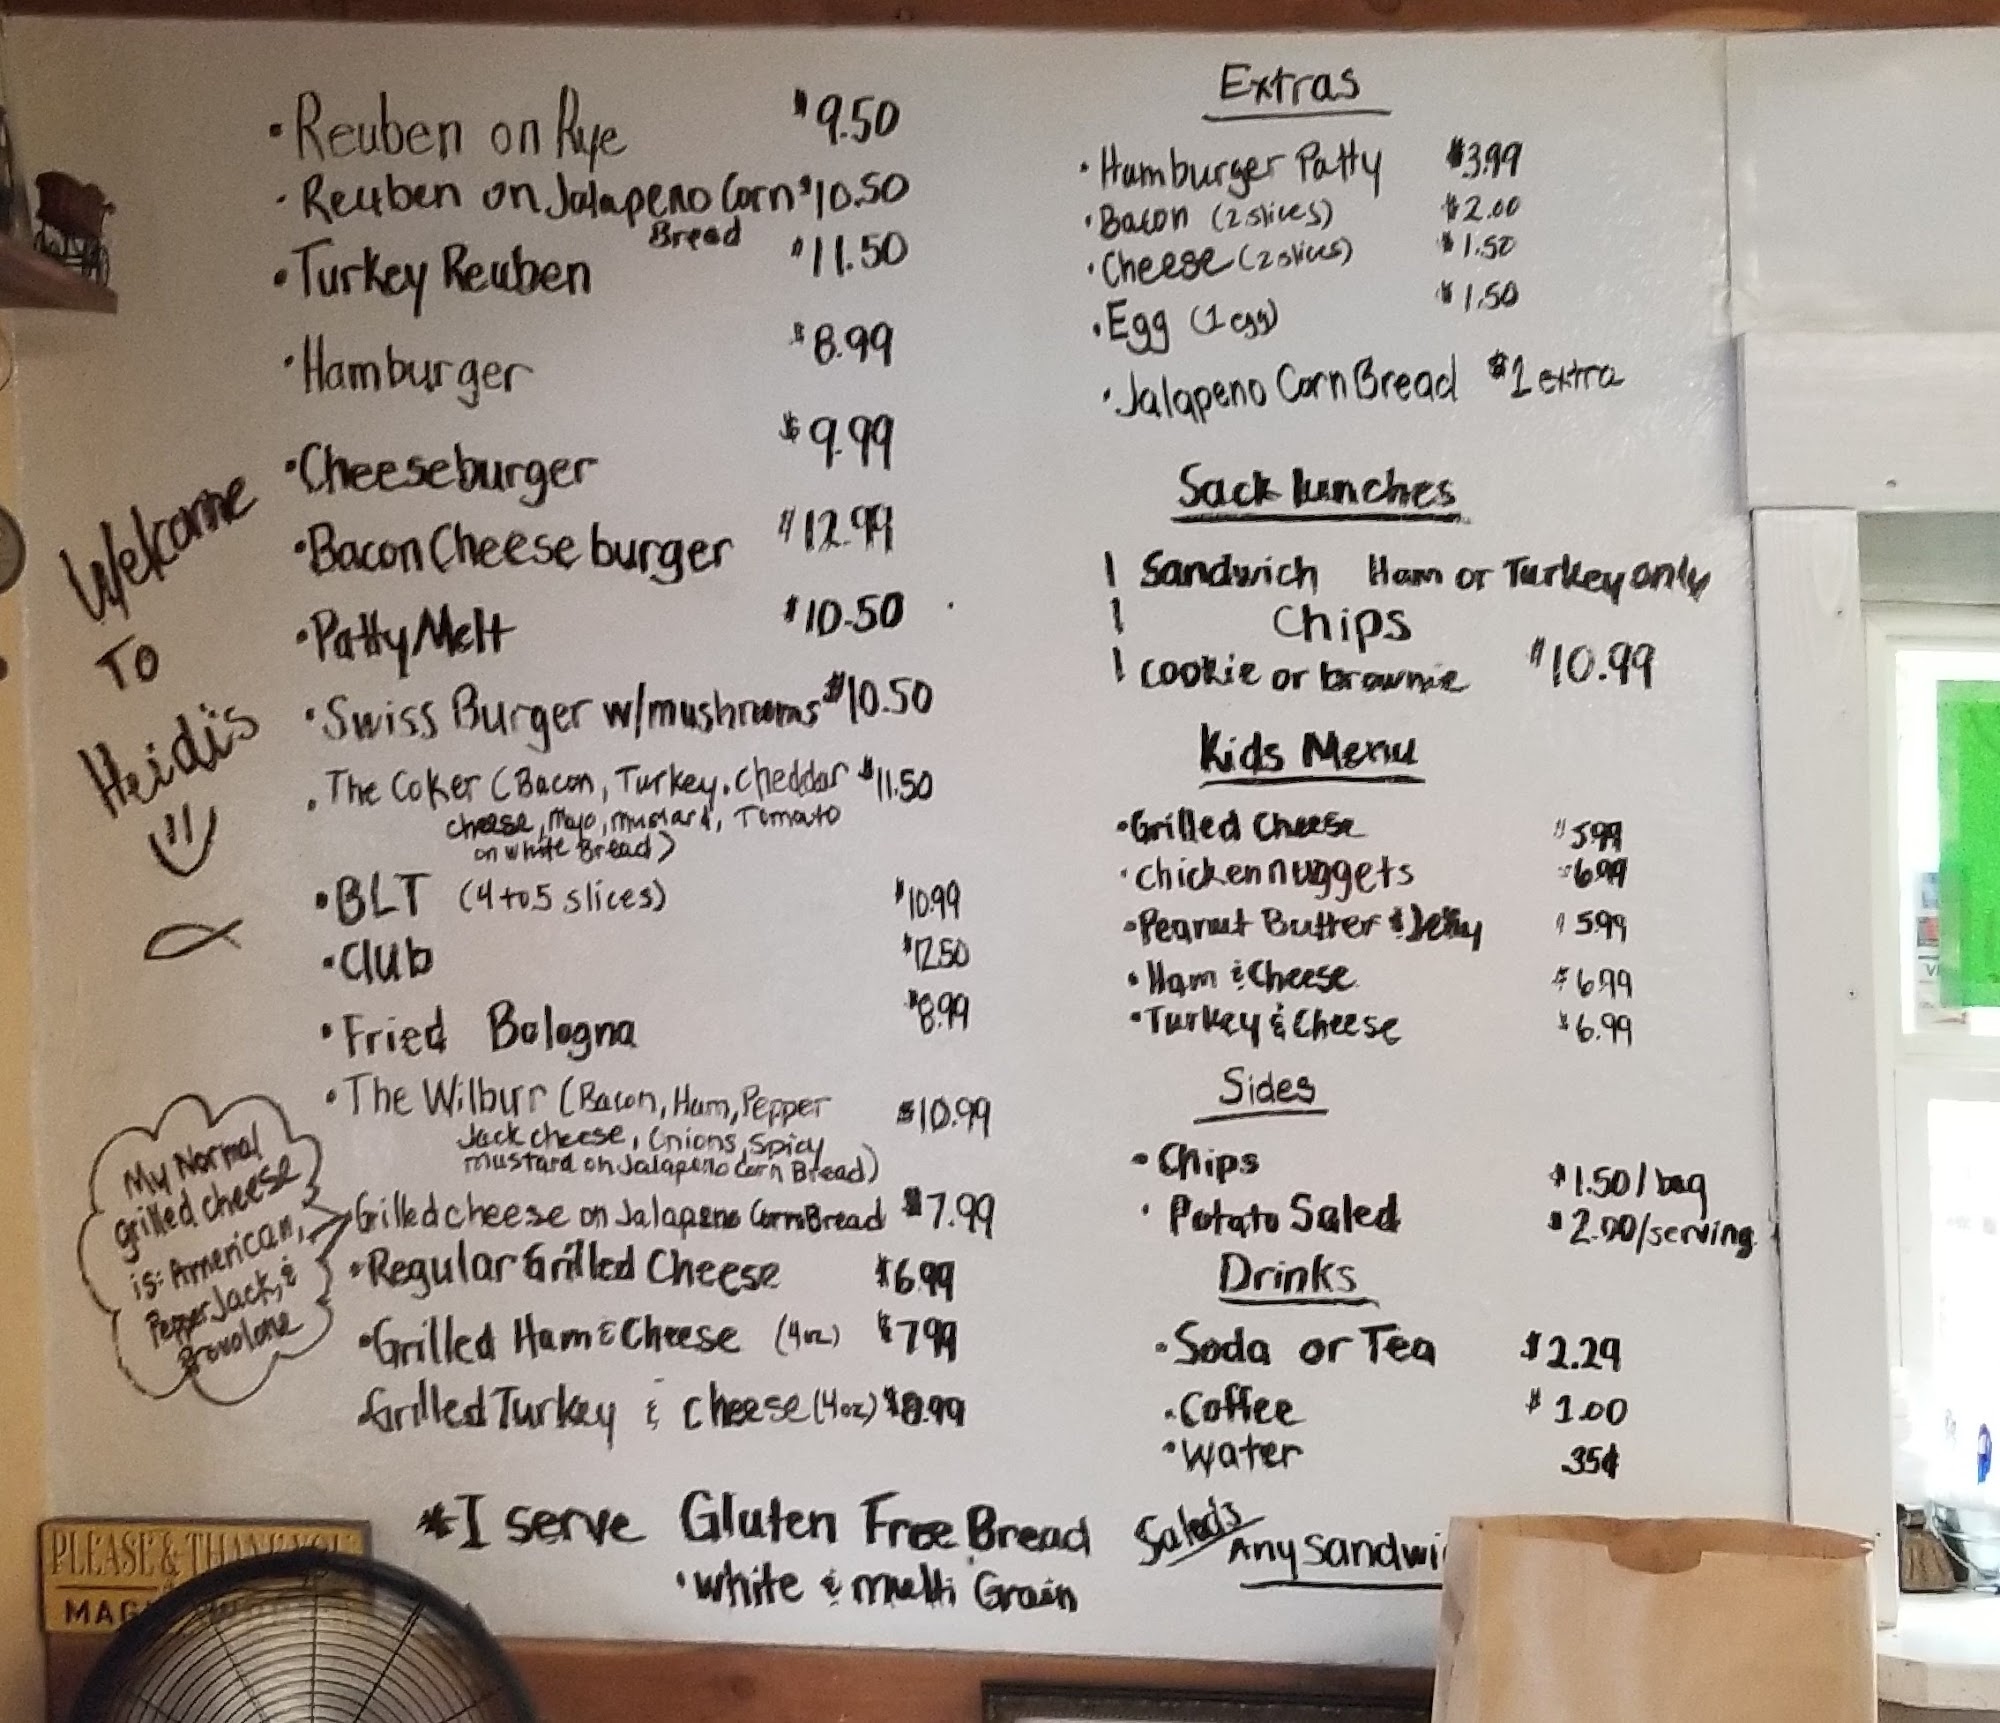 Welcome
To
Heidi's
• Reuben on Rye $9.50
• Reuben on Jalapeno Corn $10.50
Bread
• Turkey Reuben $11.50
• Hamburger $8.99
• Cheeseburger $9.99
• Bacon Cheeseburger $12.99
• Patty Melt $10.50
• Swiss Burger w/mushrooms $10.50
• The Coker (Bacon, Turkey, Cheddar $11.50
cheese, Mayo, mustard, Tomato
on white Bread)
• BLT (4 to 5 slices) $10.99
• Club $12.50
• Fried Bologna $8.99
• The Wilburr (Bacon, Ham, Pepper $10.99
Jack cheese, Onions, Spicy
mustard on Jalapeno Corn Bread)
• Grilled cheese on Jalapeno Corn Bread $7.99
• Regular Grilled Cheese $6.99
• Grilled Ham & Cheese (4oz) $7.99
• Grilled Turkey & cheese (4oz) $8.99
My Normal
grilled cheese
is: American,
Pepper Jack, &
Provolone
*I serve Gluten Free Bread
• white & multi Grain
Extras
• Hamburger Patty $3.99
• Bacon (2 slices) $2.00
• Cheese (2 slices) $1.50
• Egg (1 egg) $1.50
• Jalapeno Corn Bread $1 extra
Sack lunches
1 Sandwich Ham or Turkey only
1 Chips
1 cookie or brownie $10.99
Kids Menu
• Grilled Cheese $5.99
• Chicken nuggets $6.99
• Peanut Butter & Jelly $5.99
• Ham & Cheese $6.99
• Turkey & Cheese $6.99
Sides
• Chips $1.50/bag
• Potato Saled $2.00/serving
Drinks
• Soda or Tea $2.29
• Coffee $1.00
• Water .35¢
Saleds
Any Sandwi
PLEASE & THANK YOU
MAG